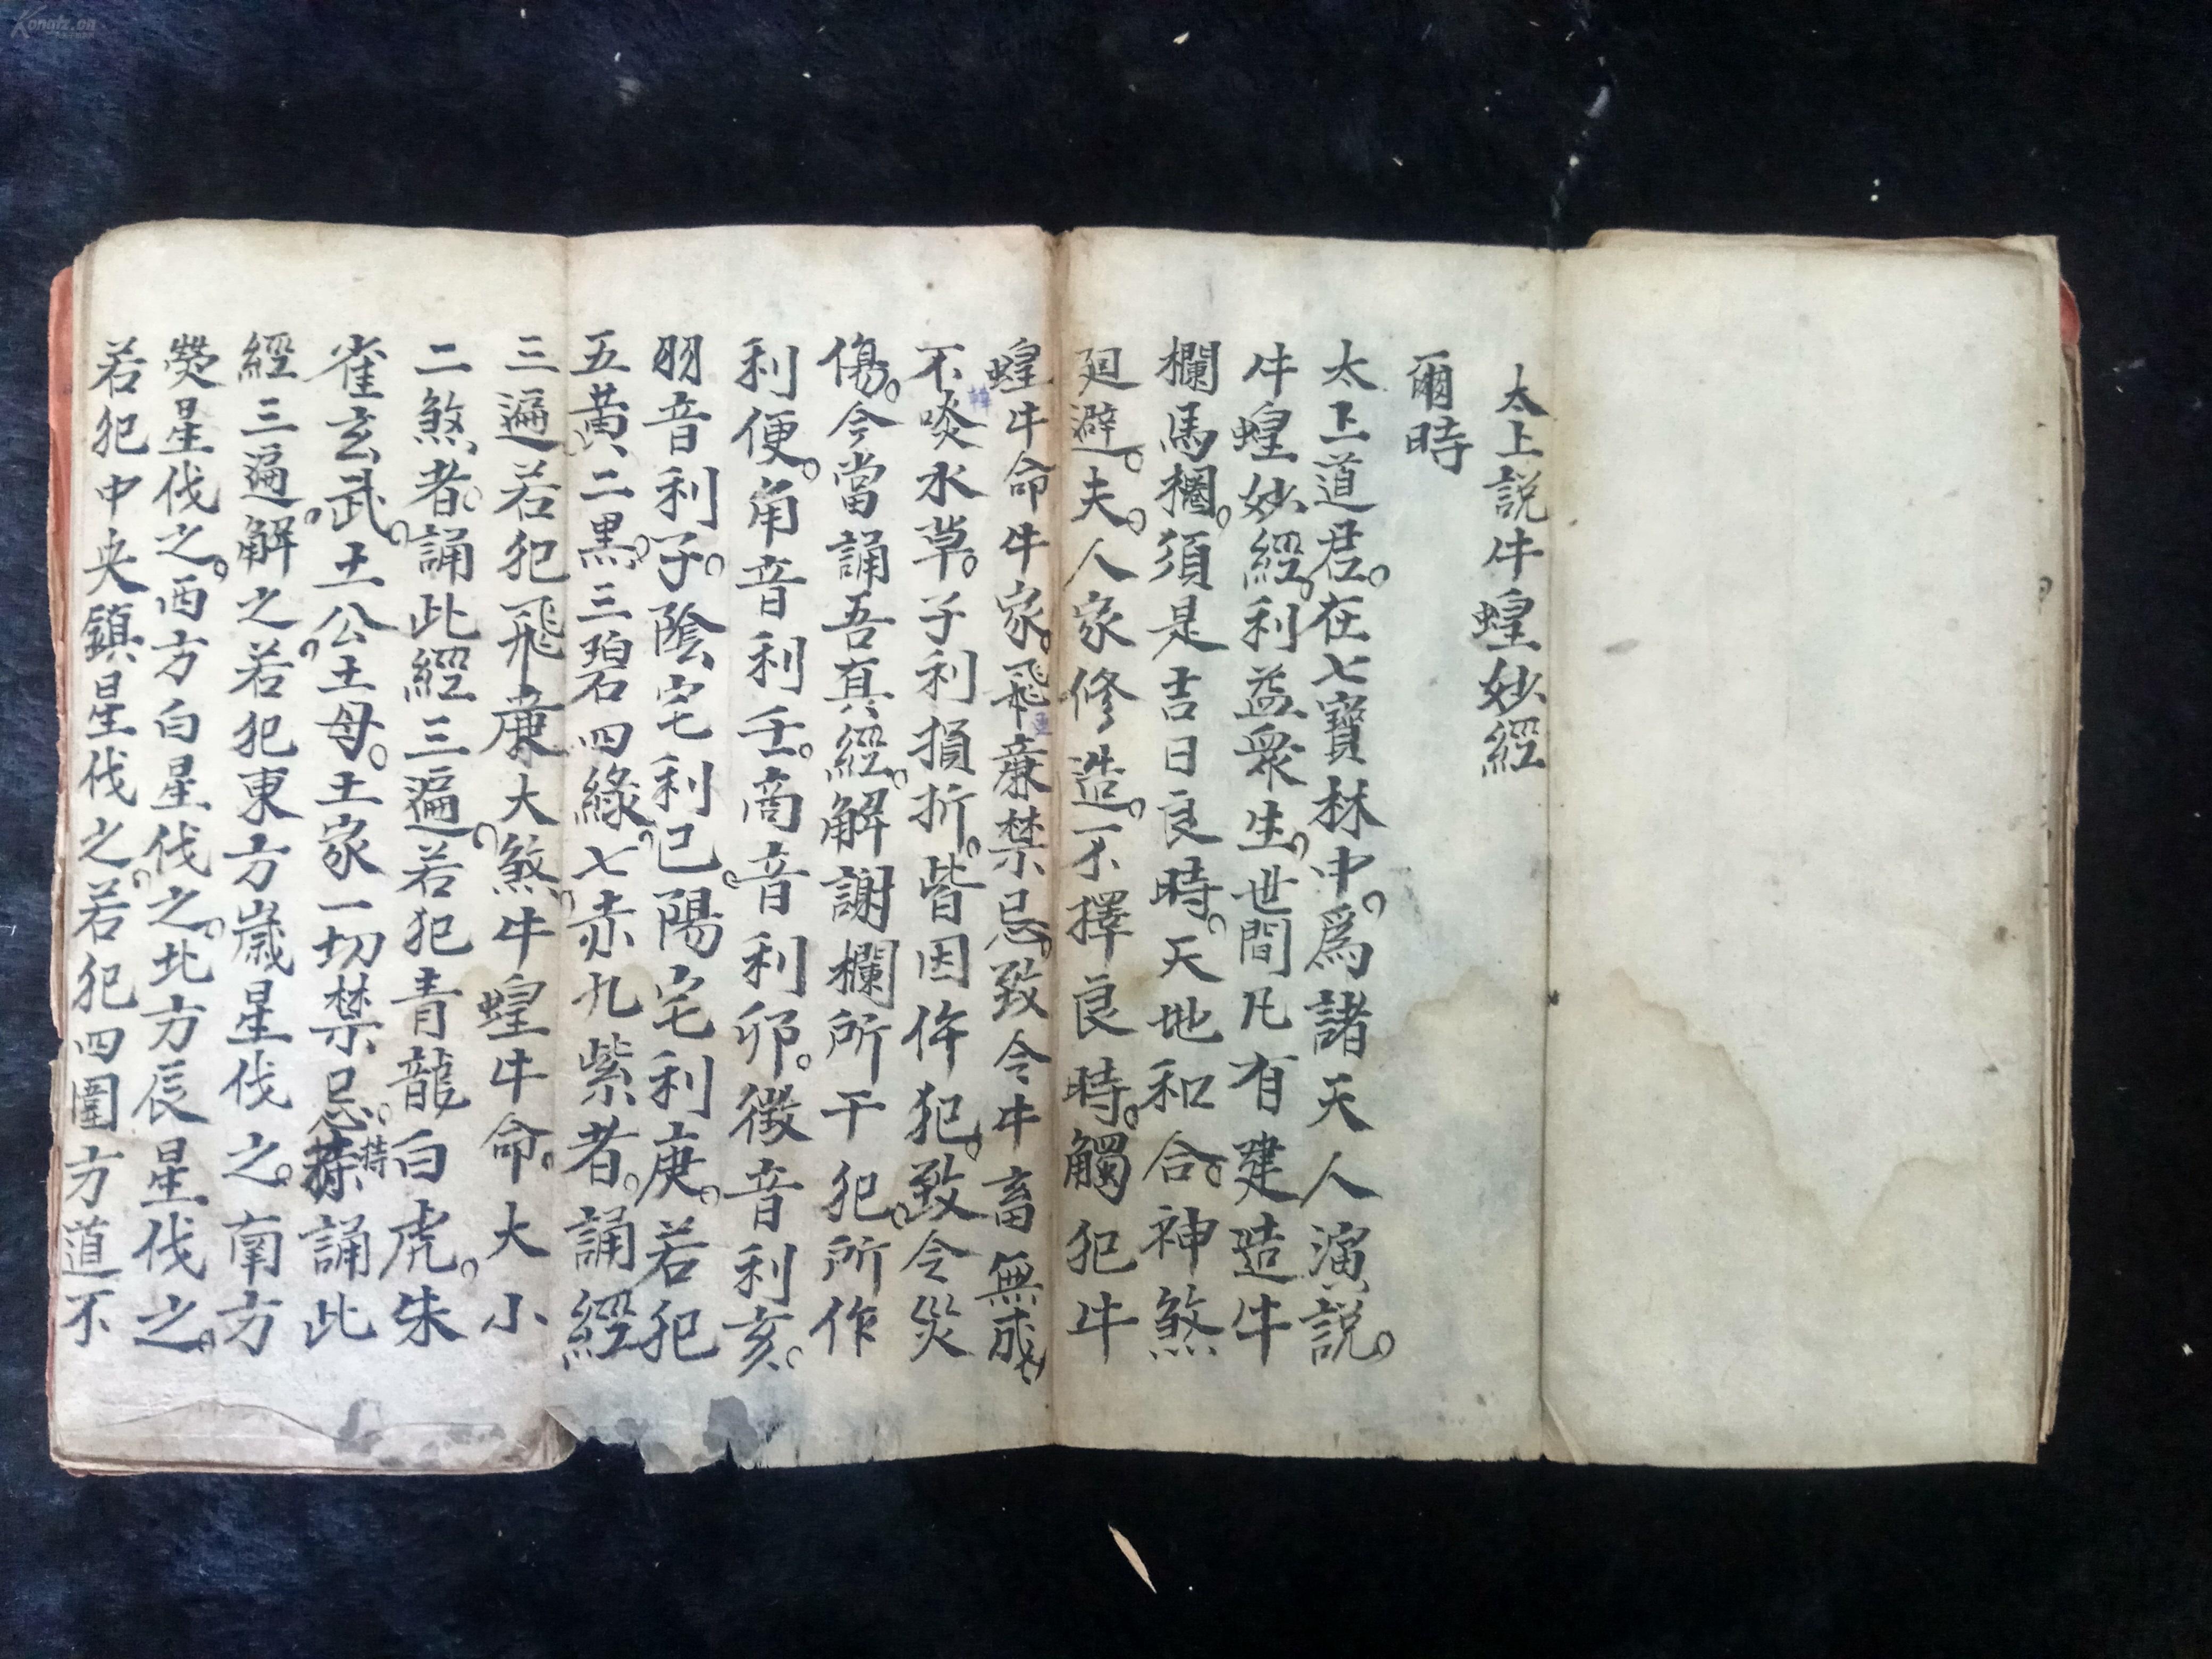 太上説牛蝗妙經
爾時
太上道君。在七寶林中。爲諸天人演説。
牛蝗妙經。利益衆生。世間凡有建造牛
欄馬櫊。須是吉日良時。天地和合。神煞
廻避。夫。人家修造。不擇良時。觸犯牛
蝗牛命牛家。飛廉禁忌。致令牛畜無成。
不啖水草。子利損折。皆因侔犯。致令災
傷。今當誦吾真經。解謝欄所干犯。所作
利便。角音利壬。商音利卯。徴音利亥。
羽音利子。陰宅利巳。陽宅利庚。若犯
五黄二黑。三碧四緑。七赤九紫者。誦經
三遍若犯飛廉大煞。牛蝗牛命。大小
二煞者。誦此經三遍。若犯青龍白虎。朱
雀玄武。土公土母。土家一切禁忌。持誦此
經三遍。解之。若犯東方歲星伐之。南方
熒星伐之。西方白星伐之。北方辰星伐之。
若犯中央鎮星伐之。若犯四圍方道不
Kongfz.cn